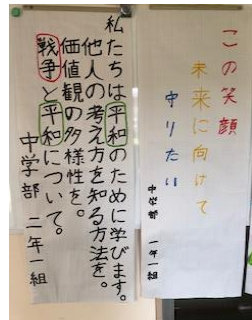 この笑顔
未来に向けて
守りたい
中学部　一年一組
私たちは平和のために学びます。
他人の考え方を知る方法を。
価値観の多様性を。
戦争と平和について。
中学部　二年一組